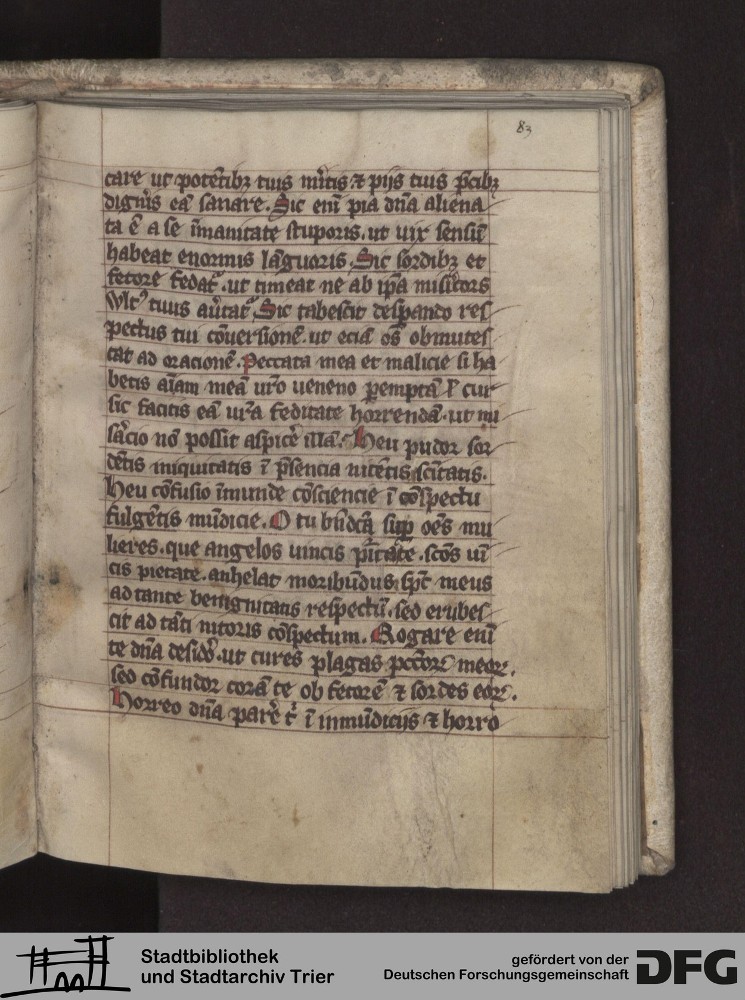 83
care ut potētibꝫ tuis mr̄itis ⁊ pijs tuis p̄cibꝫ
digneris eā sanare. Sic eni pia dn̄a aliena
ta ē a se īmanitate stuporis. ut uix sensū
habeat enormis lāguoris. Sic sordibꝫ et
fetore fedatᷣ. ut timeat ne ab ip̄a misic̄ors
Vultꝰ tuus aūtatᷣ Sic tabescit despando res
pectus tui cōuersionē. ut eciā os obmutes
cat ad oracionē. Peccata mea et malicie si ha
betis aīam meā ur̄o ueneno pemptā
sic facitis eā ur̄a feditate horrendā. ut mi
sacio nō possit aspicˀe illā. Heu pudor sor
dētis iniquitatis ī p̄sencia nitētis scītatis.
Heu cōfusio īmunde cōsciencie ī cōspectu
fulgētis mūdicie. O tu bn̄dcā sup oēs mu
lieres. que angelos uincis pūtate. scōs uī
cis pietate. anhelat moribūdus spc̄ meus
ad tante benignitatis respectū. sed erubes
cit ad tāti nitoris cōspectum. Rogare eni
te dn̄a desidˀo. ut cures plagas pcc̄oꝝ meoꝝ.
sed cōfundor corā te ob fetorē ⁊ sordes eoꝝ.
Horreo dn̄a parˀe t ī inmūdicijs ⁊ horro
Stadtbibliothek
und Stadtarchiv Trier
gefördert von der
Deutschen Forschungsgemeinschaft
DFG